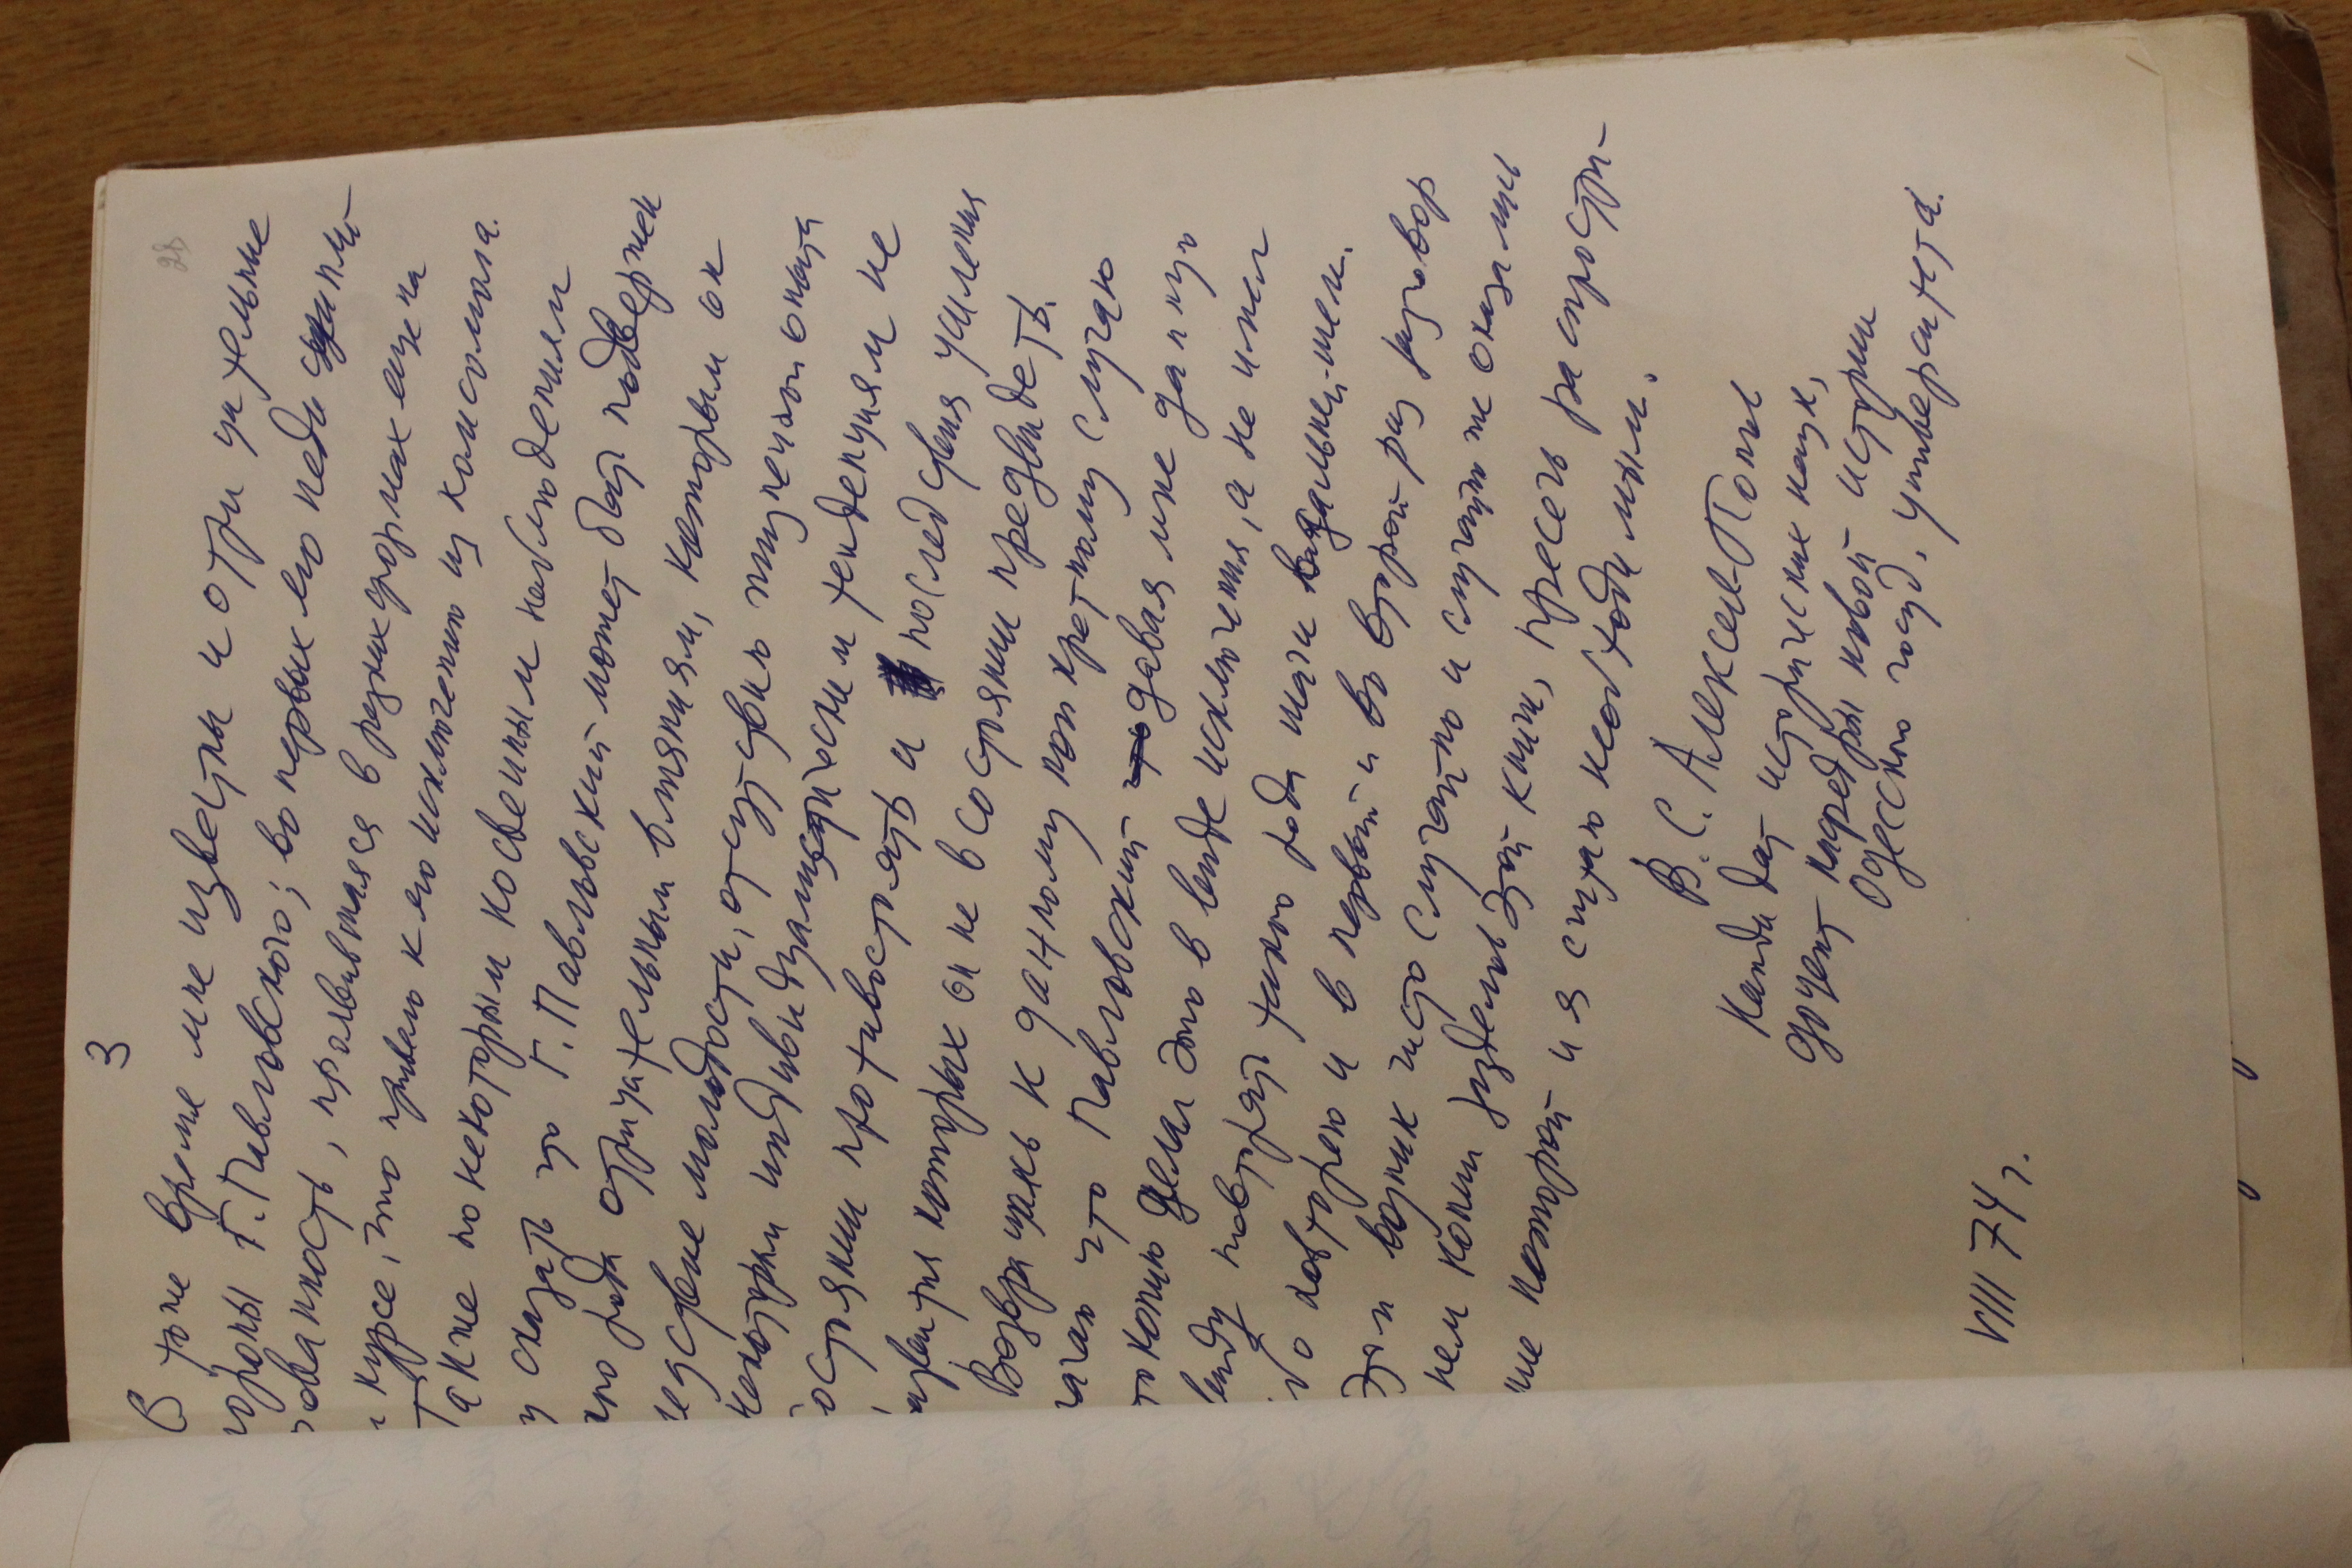 3
28
В тоже время мне известны и отрицательные
тороны Г. Павловского; во первых его недисципли-
рованность, проявившаяся в резких формах еще на
курсе, это привело к его исключению из комсомола.
Также по некоторым косвенным наблюдениям
у сказать что Г. Павловский может быт подвержен
ого рода отрицательным влияниям, которым он
ледствие молодости, отсутствию жизненого опыта
некоторым индивидуалистическим тенденциям не
остоянии противостоять и последствия усиления
азвития которых он не в состоянии предвидеть.
Возвращаясь к данному конкретному случаю
агаю что Павловский давая мне данную
токопию делал это в виде исключения, а не имел
виду повторять такого рода шаги в дальнейшем.
о повторею и в первый и во второй раз разговор
Эрн возник чисто случайно и случайно же оказались
нем копии разделов этой книги, пресечь распростра-
ние которой и я считаю необходимым.
В. С. Алексеев-Попов
Кандидат исторических наук,
доцент кафедры новой истории
Одесского госуд. университета.
VIII 74 г.